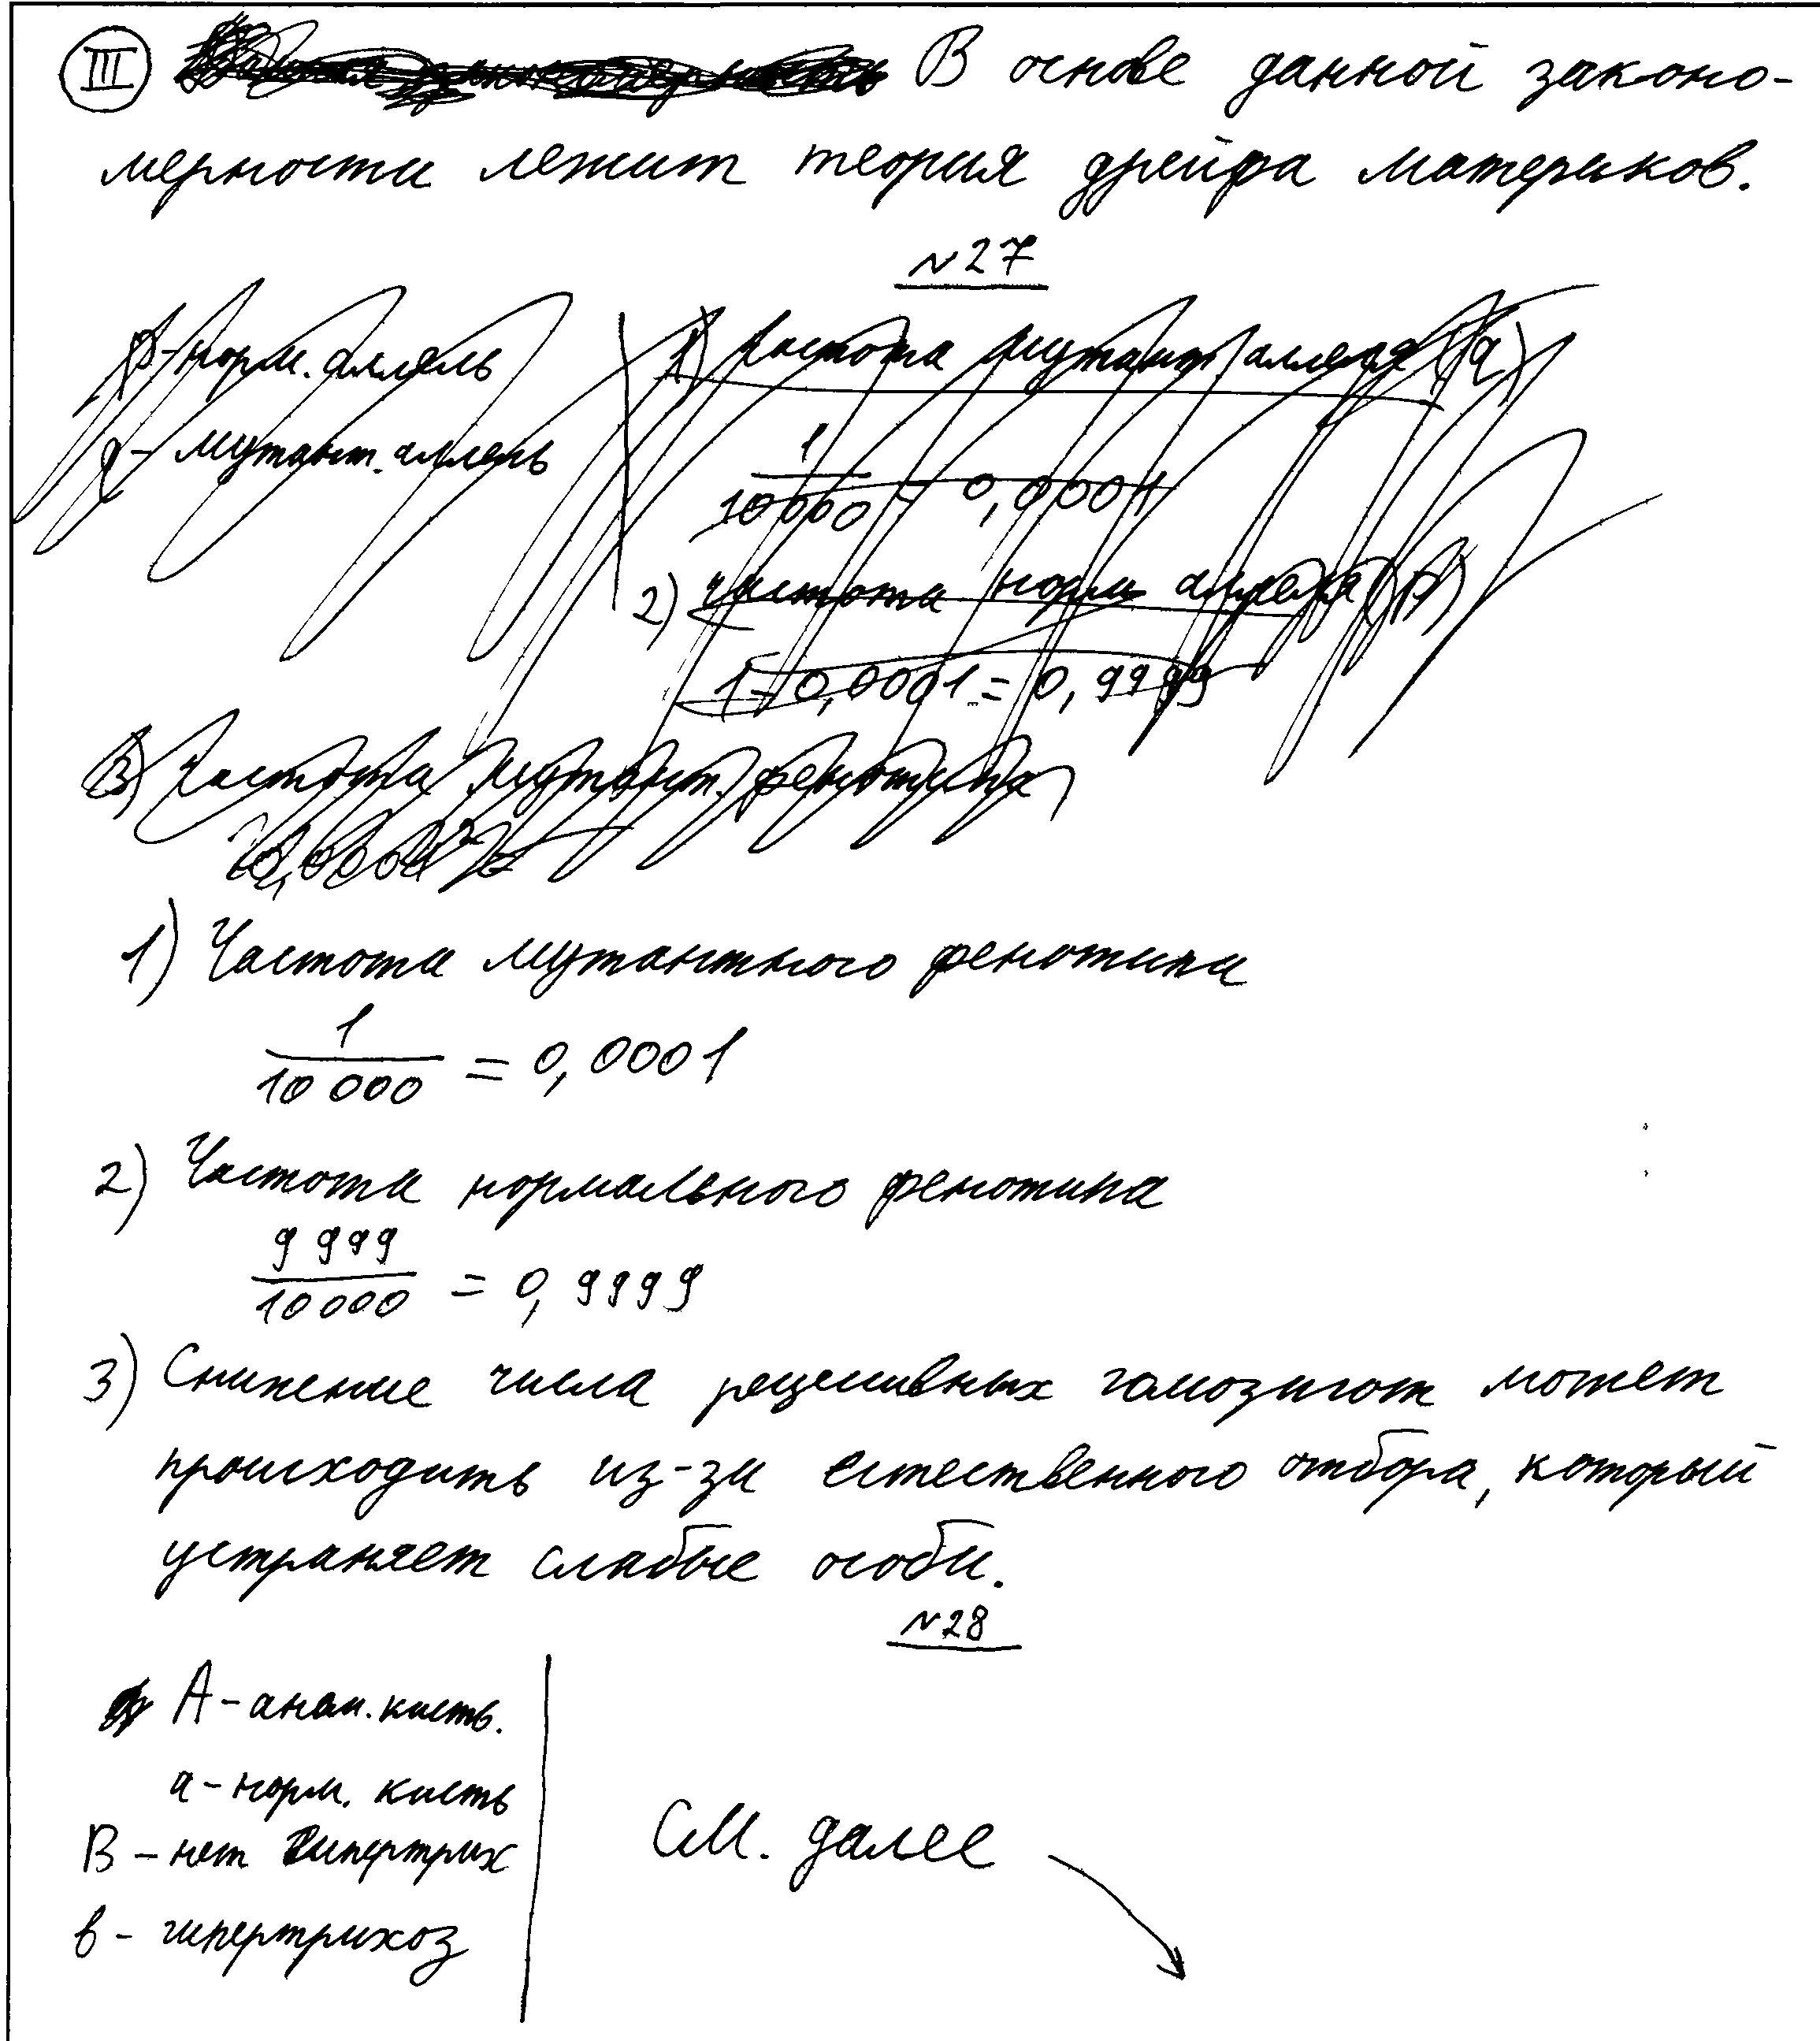 III В основе данной законо-
мерности лежит теория дрейфа материков.
№27
p - норм. аллель
q - мутант. аллель
1) Частота мутант аллеля (q)
1/10000 = 0,0001
2) частота норм аллеля (p)
1 - 0,0001 = 0,9999
3) Частота мутант. фенотипа
1) Частота мутантного фенотипа
1/10 000 = 0,0001
2) Частота нормального фенотипа
9 999/10000 = 0,9999
3) Снижение числа рецесивных гомозигот может
происходить из-за естественного отбора, который
устраняет слабые особи.
№28
A - аном. кисть.
a - норм. кисть
B - нет гипертрих
b - гипертрихоз
См. далее